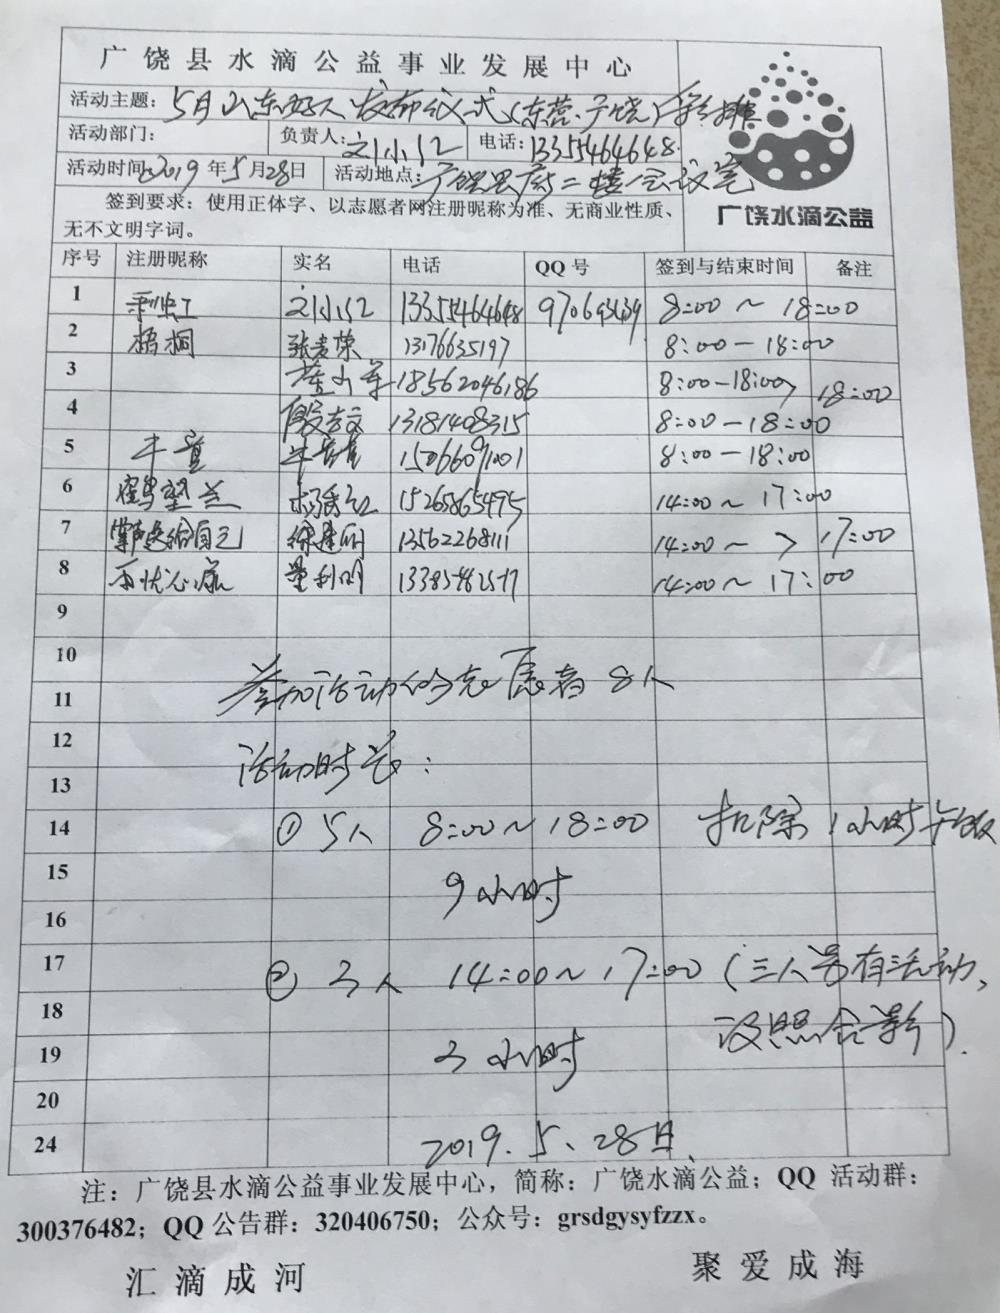 广饶县水滴公益事业发展中心
活动主题：5月山东好人发布仪式（东营·广饶）彩排
活动部门： 负责人：刘小红 电话：13355464648
活动时间：2019年5月28日 活动地点：广饶县府二楼会议室
广饶水滴公益
签到要求：使用正体字、以志愿者网注册昵称为准、无商业性质、
无不文明字词。
序号 注册昵称 实名 电话 QQ号 签到与结束时间 备注
1 13355464648 8:00～18:00
2 梧桐 13176635197 8:00—18:00
3 18562046186 8:00—18:00 18:00
4 13181408315 8:00—18:00
5 15066091001 8:00—18:00
6 鹤望兰 15265865495 14:00～17:00
7 掌声送给自己 13562268111 14:00～ 17:00
8 14:00～17:00
9
10
参加活动的志愿者8人
11
12
活动时长：
13
14 ①5人 8:00～18:00 扣除1小时午饭
15 9小时
16
17 ②3人 14:00～17:00（三人另有活动、
18 没照合影）.
19 3小时
20
24 2019.5、28日
注：广饶县水滴公益事业发展中心，简称：广饶水滴公益；QQ 活动群：
300376482；QQ 公告群：320406750；公众号：grsdgysyfzzx。
汇滴成河 聚爱成海